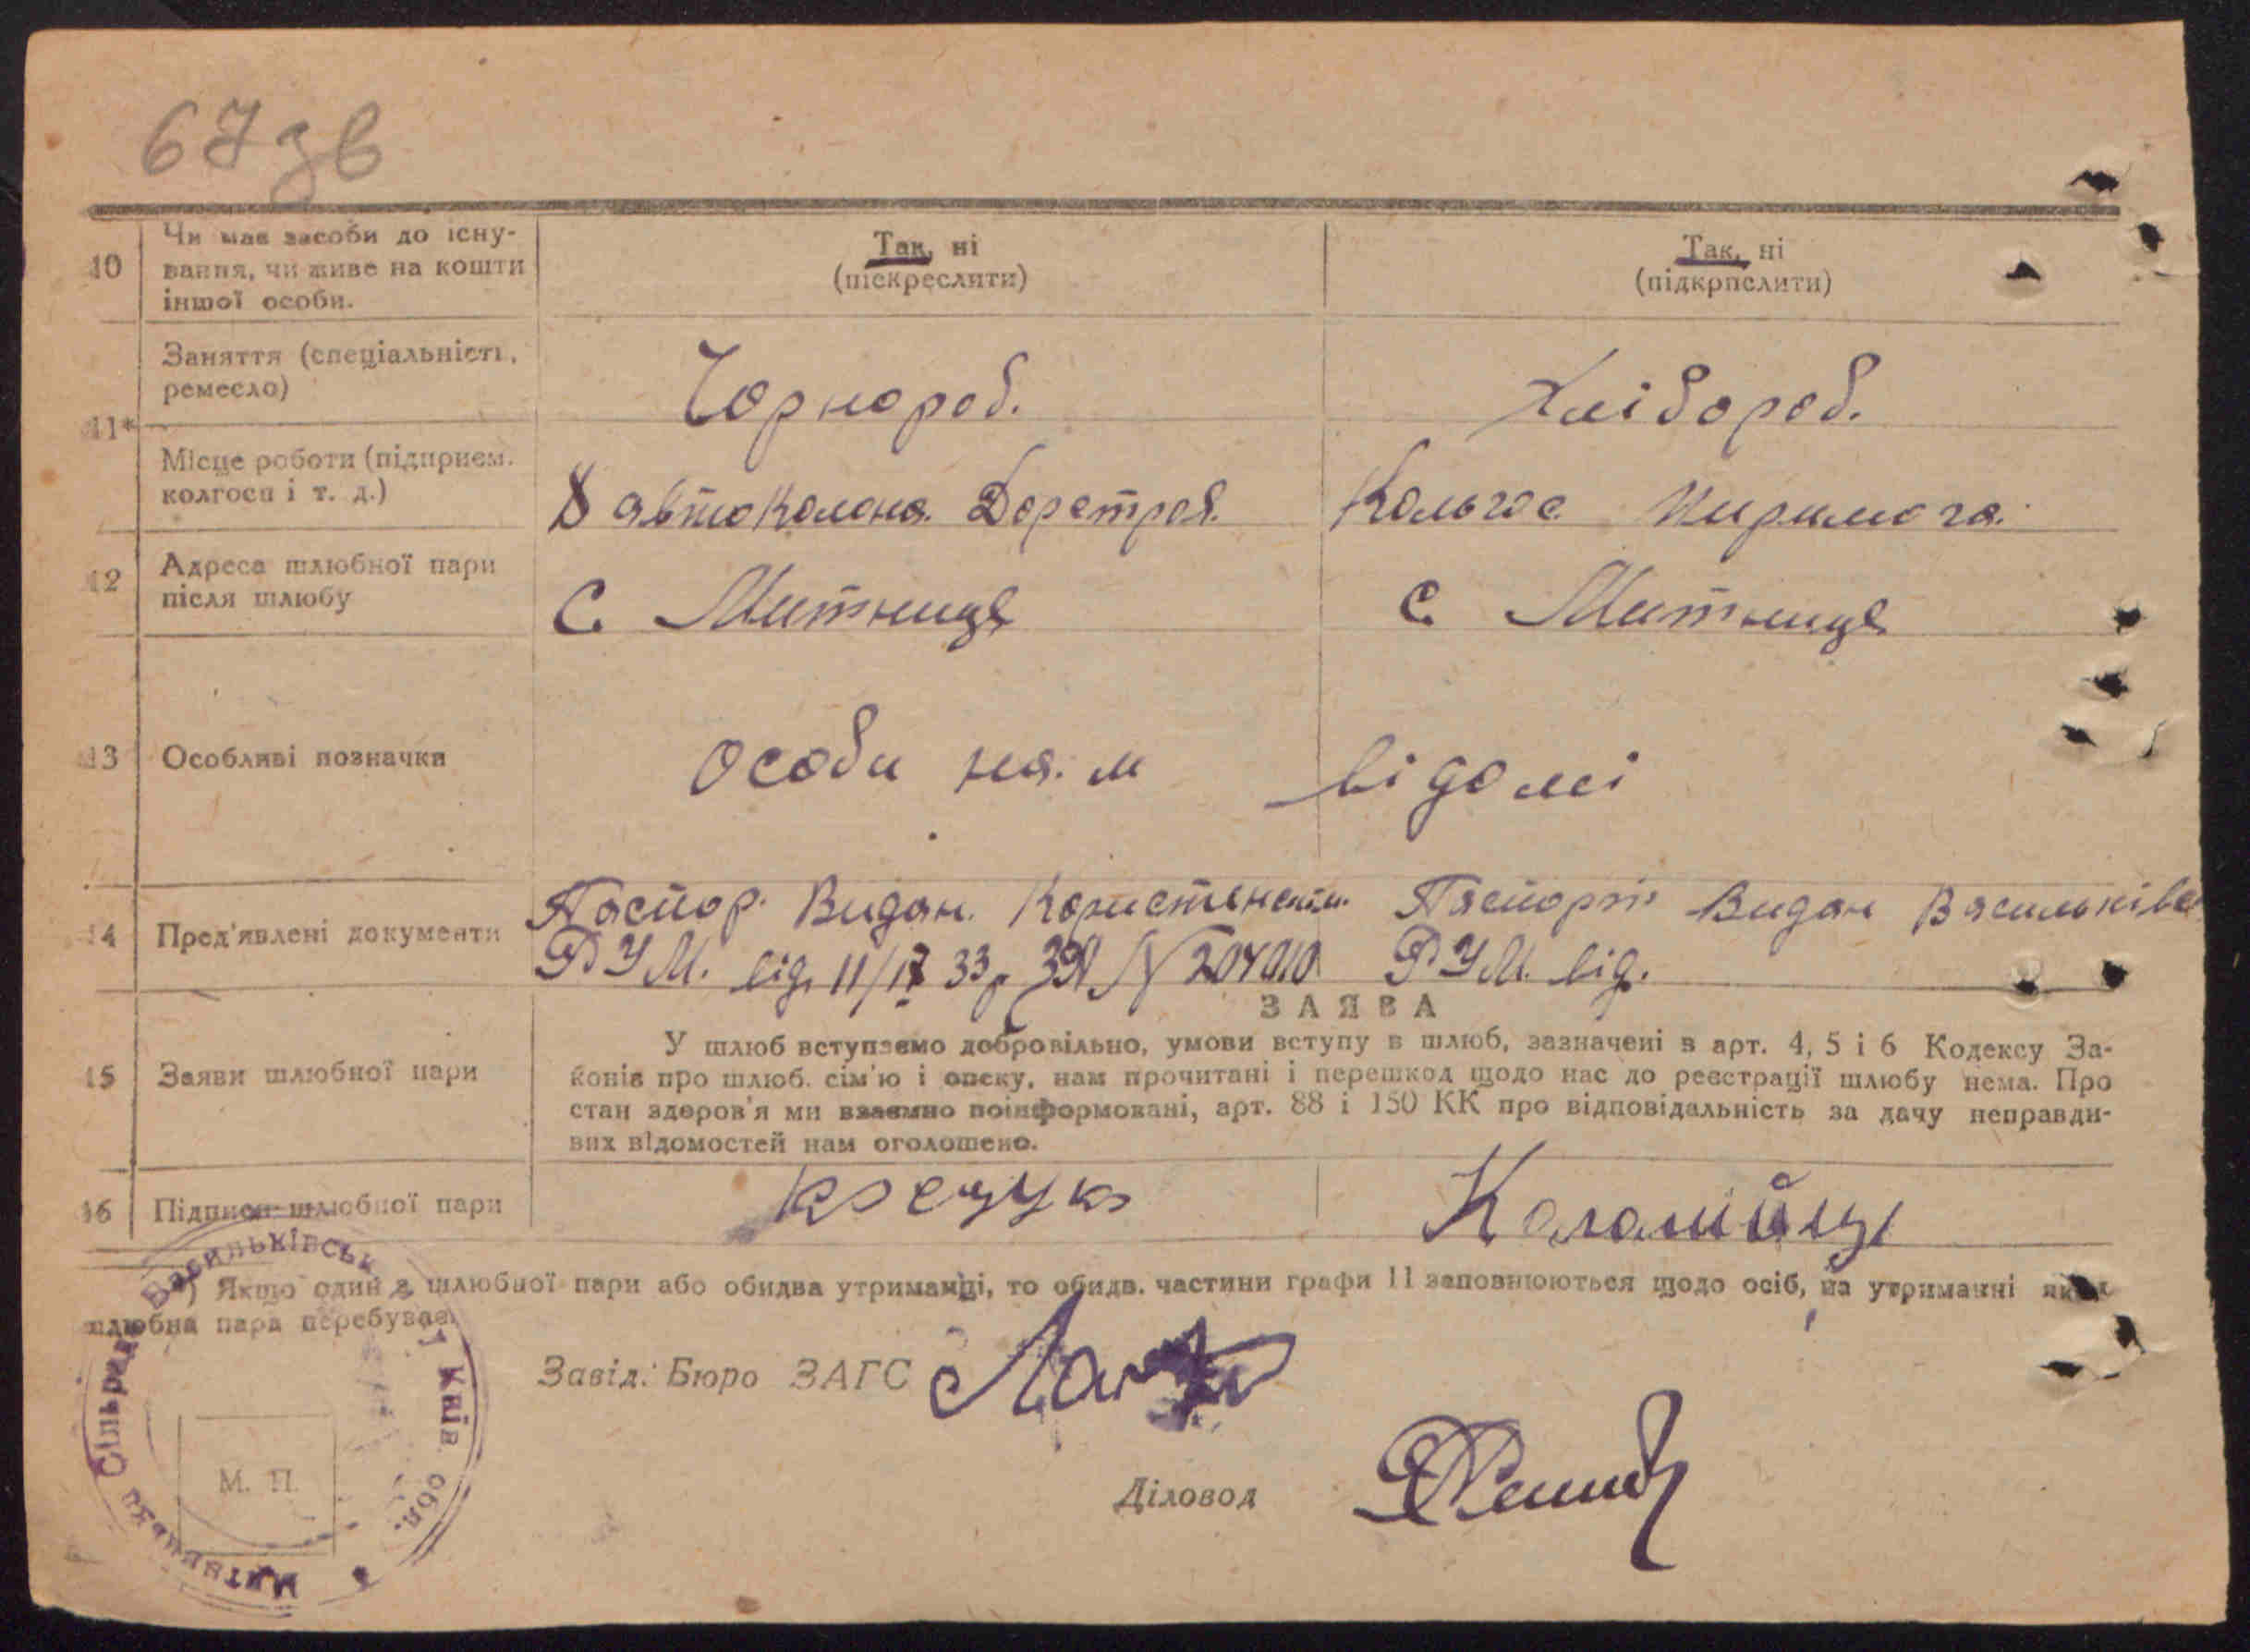 67 зв
10
Чи має засоби до існу-
вання, чи живе на кошти
іншої особи.
Так, ні
(піскреслити)
Так, ні
(підкрпслити)
Заняття (спеціальність,
ремесло)
Чорнороб.
Хлібороб.
11*
Місце роботи (підприєм.
колгосп і т. д.)
8 автоколона
Кольгос
12
Адреса шлюбної пари
після шлюбу
С. Митниця
С. Митниця
13
Особливі позначки
Особи на.м відомі
14
Пред'явлені документи
Паспор. Видан.
РУМ. від. 11/17 33р
Паспорт Видан Васильківс
РУМ. від.
15
Заяви шлюбної пари
ЗАЯВА
У шлюб вступаємо добровільно, умови вступу в шлюб, зазначені в арт. 4, 5 і 6 Кодексу За-
конів про шлюб. сім'ю і опеку, нам прочитані і перешкод щодо нас до реєстрації шлюбу нема. Про
стан здоров'я ми взаємно поінформовані, арт. 88 і 150 КК про відповідальність за дачу неправди-
вих відомостей нам оголошено.
16
Підписи шлюбної пари
*) Якщо один з шлюбної пари або обидва утриманці, то обидв. частини графи 11 заповнюються щодо осіб, на утриманні яких
шлюбна пара перебуває.
Завід. Бюро ЗАГС
Діловод
М. П.
Сільрада Васильківськ Київ обл.